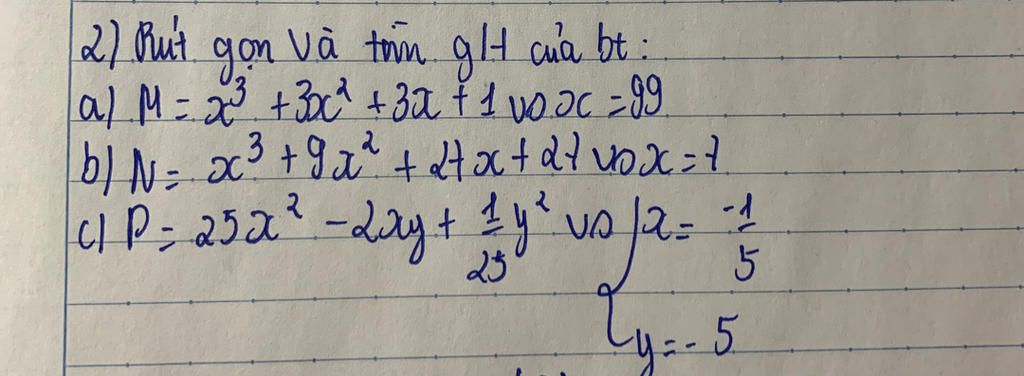 2) Rút gọn và tìm gtt của bt:
a) M = x³ + 3x² + 3x + 1 vs x = 99
b) N = x³ + 9x² + 27x + 27 vs x = 7
c) P = 25x² - 2xy + 1/25 y² vs { x = -1/5
y = - 5